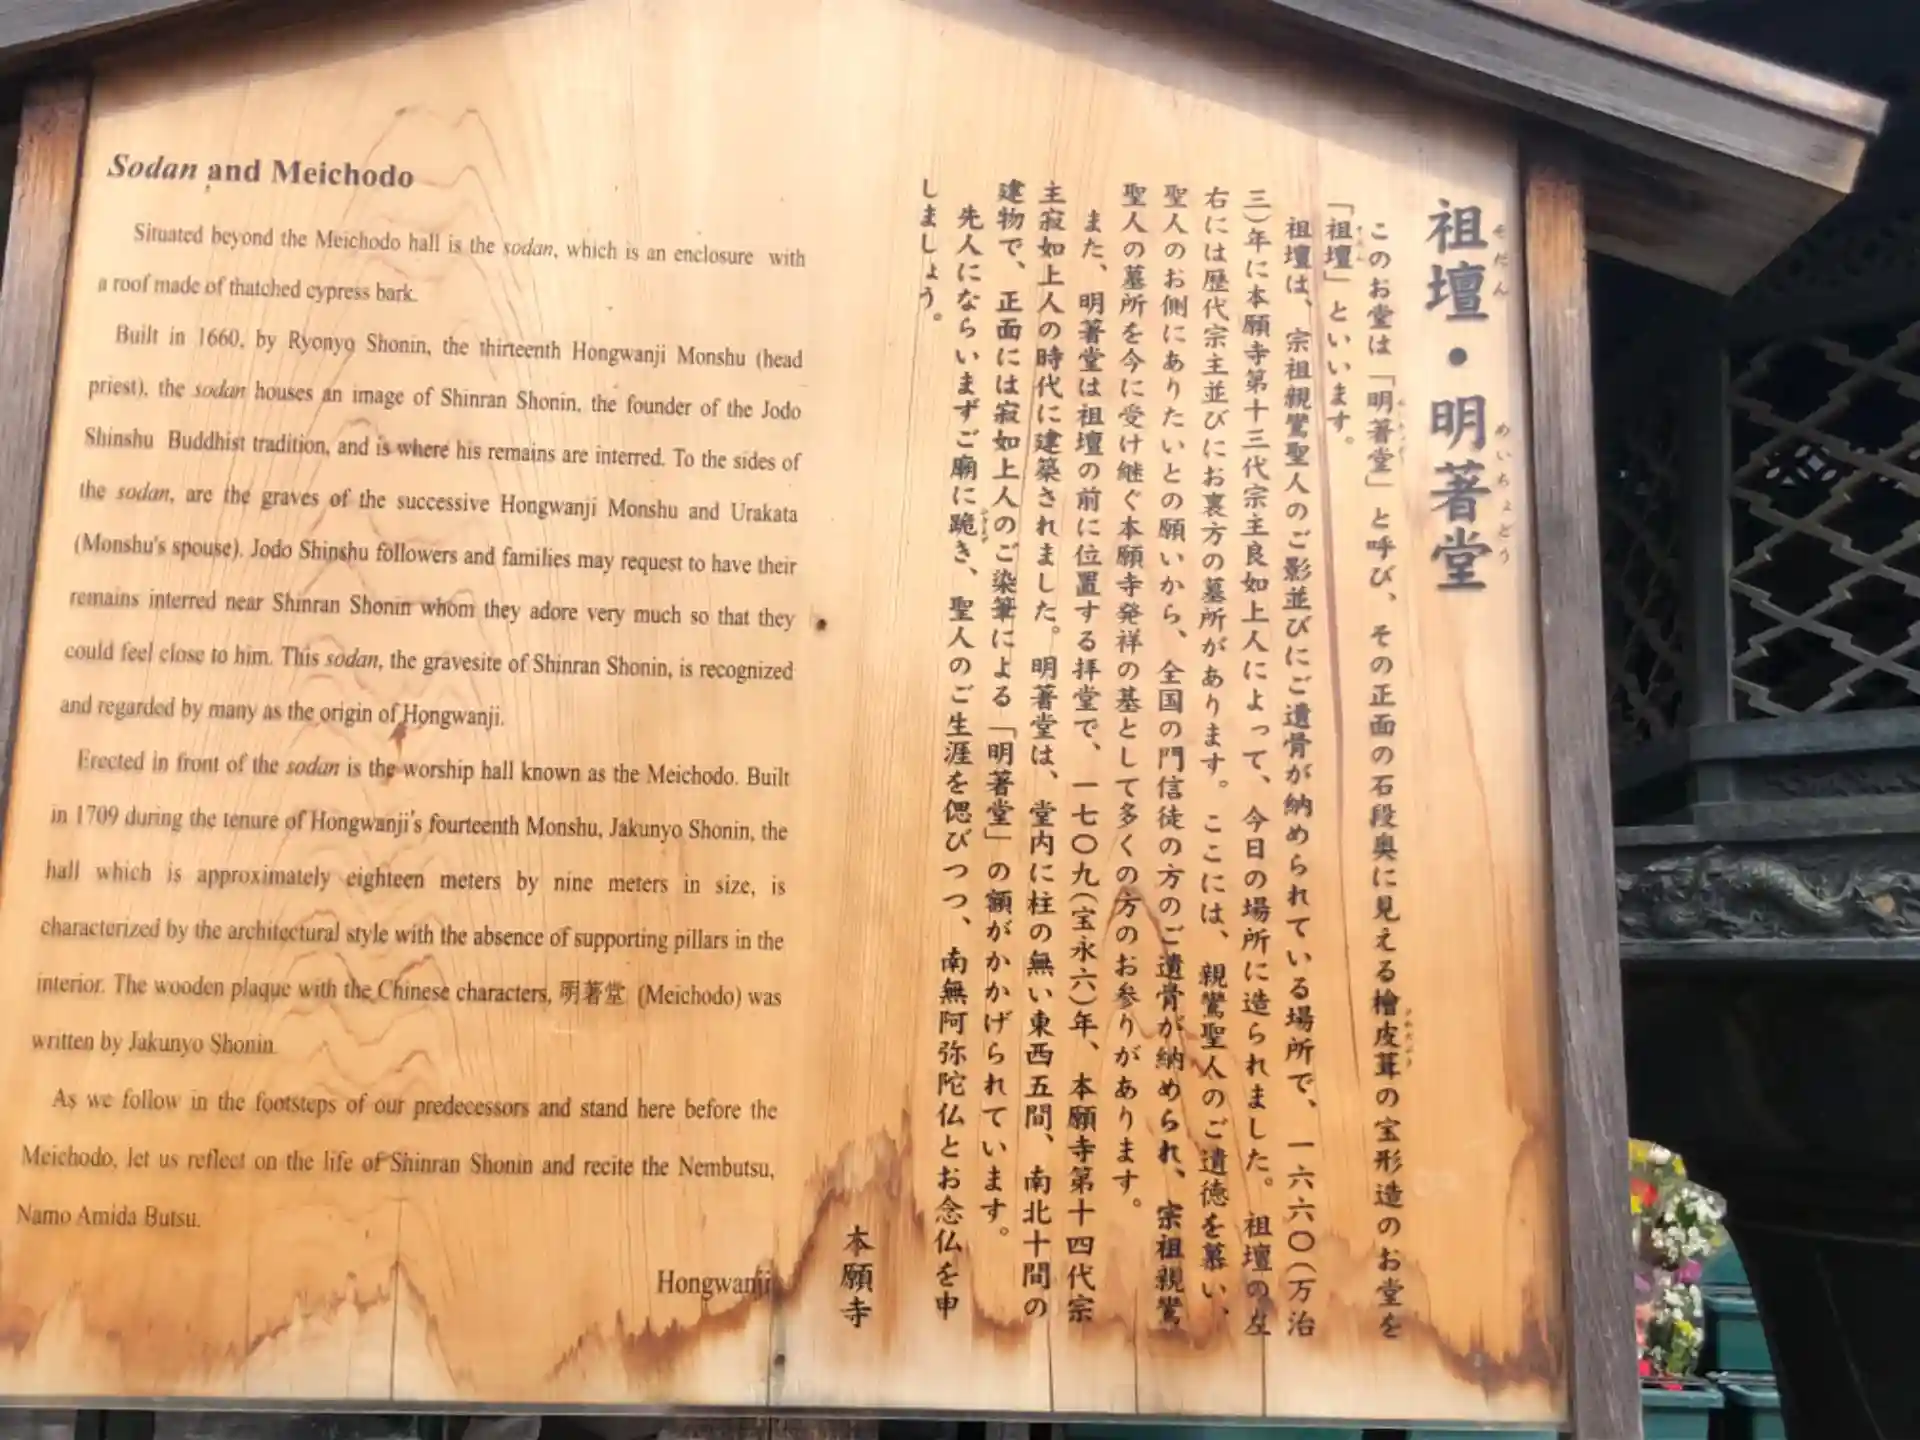 Sodan and Meichodo
Situated beyond the Meichodo hall is the sodan, which is an enclosure with
a roof made of thatched cypress bark.
Built in 1660, by Ryonyo Shonin, the thirteenth Hongwanji Monshu (head
priest), the sodan houses an image of Shinran Shonin, the founder of the Jodo
Shinshu Buddhist tradition, and is where his remains are interred. To the sides of
the sodan, are the graves of the successive Hongwanji Monshu and Urakata
(Monshu's spouse). Jodo Shinshu followers and families may request to have their
remains interred near Shinran Shonin whom they adore very much so that they
could feel close to him. This sodan, the gravesite of Shinran Shonin, is recognized
and regarded by many as the origin of Hongwanji.
Erected in front of the sodan is the worship hall known as the Meichodo. Built
in 1709 during the tenure of Hongwanji's fourteenth Monshu, Jakunyo Shonin, the
hall which is approximately eighteen meters by nine meters in size, is
characterized by the architectural style with the absence of supporting pillars in the
interior. The wooden plaque with the Chinese characters, 明著堂 (Meichodo) was
written by Jakunyo Shonin.
As we follow in the footsteps of our predecessors and stand here before the
Meichodo, let us reflect on the life of Shinran Shonin and recite the Nembutsu,
Namo Amida Butsu.
Hongwanji
祖壇・明著堂
そだん めいちょどう
このお堂は「明著堂」と呼び、その正面の石段奥に見える檜皮葺の宝形造のお堂を
「祖壇」といいます。
祖壇は、宗祖親鸞聖人のご影並びにご遺骨が納められている場所で、一六六〇(万治
三)年に本願寺第十三代宗主良如上人によって、今日の場所に造られました。祖壇の左
右には歴代宗主並びにお裏方の墓所があります。ここには、親鸞聖人のご遺徳を慕い、
聖人のお側にありたいとの願いから、全国の門信徒の方のご遺骨が納められ、宗祖親鸞
聖人の墓所を今に受け継ぐ本願寺発祥の基として多くの方のお参りがあります。
また、明著堂は祖壇の前に位置する拝堂で、一七〇九(宝永六)年、本願寺第十四代宗
主寂如上人の時代に建築されました。明著堂は、堂内に柱の無い東西五間、南北十間の
建物で、正面には寂如上人のご染筆による「明著堂」の額がかかげられています。
先人にならいまずご廟に跪き、聖人のご生涯を偲びつつ、南無阿弥陀仏とお念仏を申
しましょう。
本願寺